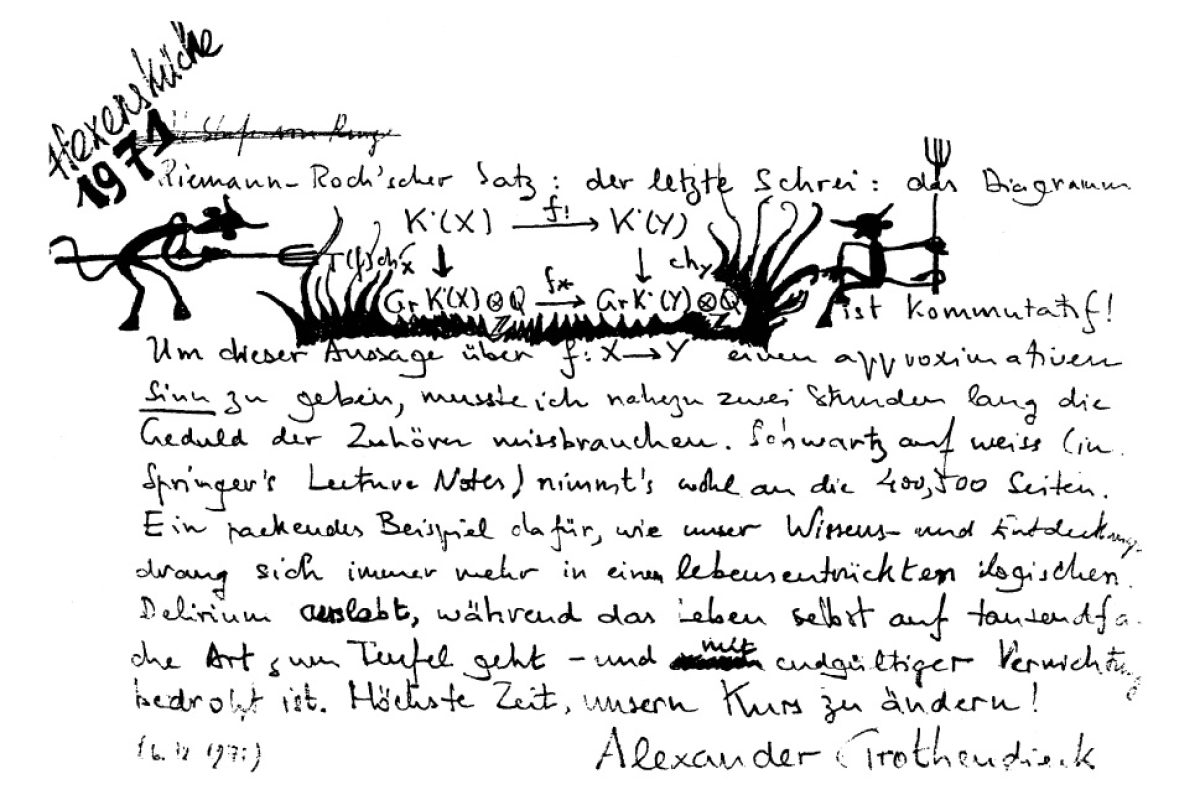 Hexenküche
1971
Riemann-Roch'scher Satz: der letzte Schrei: das Diagramm
K˙(X) f! → K˙(Y)
T(f)ch_X ↓ ↓ ch_Y
Gr K˙(X)⊗Q f* → Gr K˙(Y)⊗Q
Z Z
ist kommutatif!
Um dieser Aussage über f: X→Y einen approximativen
Sinn zu geben, musste ich nahezu zwei Stunden lang die
Geduld der Zuhörer missbrauchen. Schwartz auf weiss (in
Springer's Lecture Notes) nimmt's wohl an die 400, 500 Seiten.
Ein packendes Beispiel dafür, wie unser Wissens- und Entdeckungs
drang sich immer mehr in einem lebensentrückten logischen
Delirium auslebt, während das Leben selbst auf tausendfa-
che Art zum Teufel geht - und mit endgültiger Vernichtung
bedroht ist. Höchste Zeit, unsern Kurs zu ändern!
Alexander Grothendieck